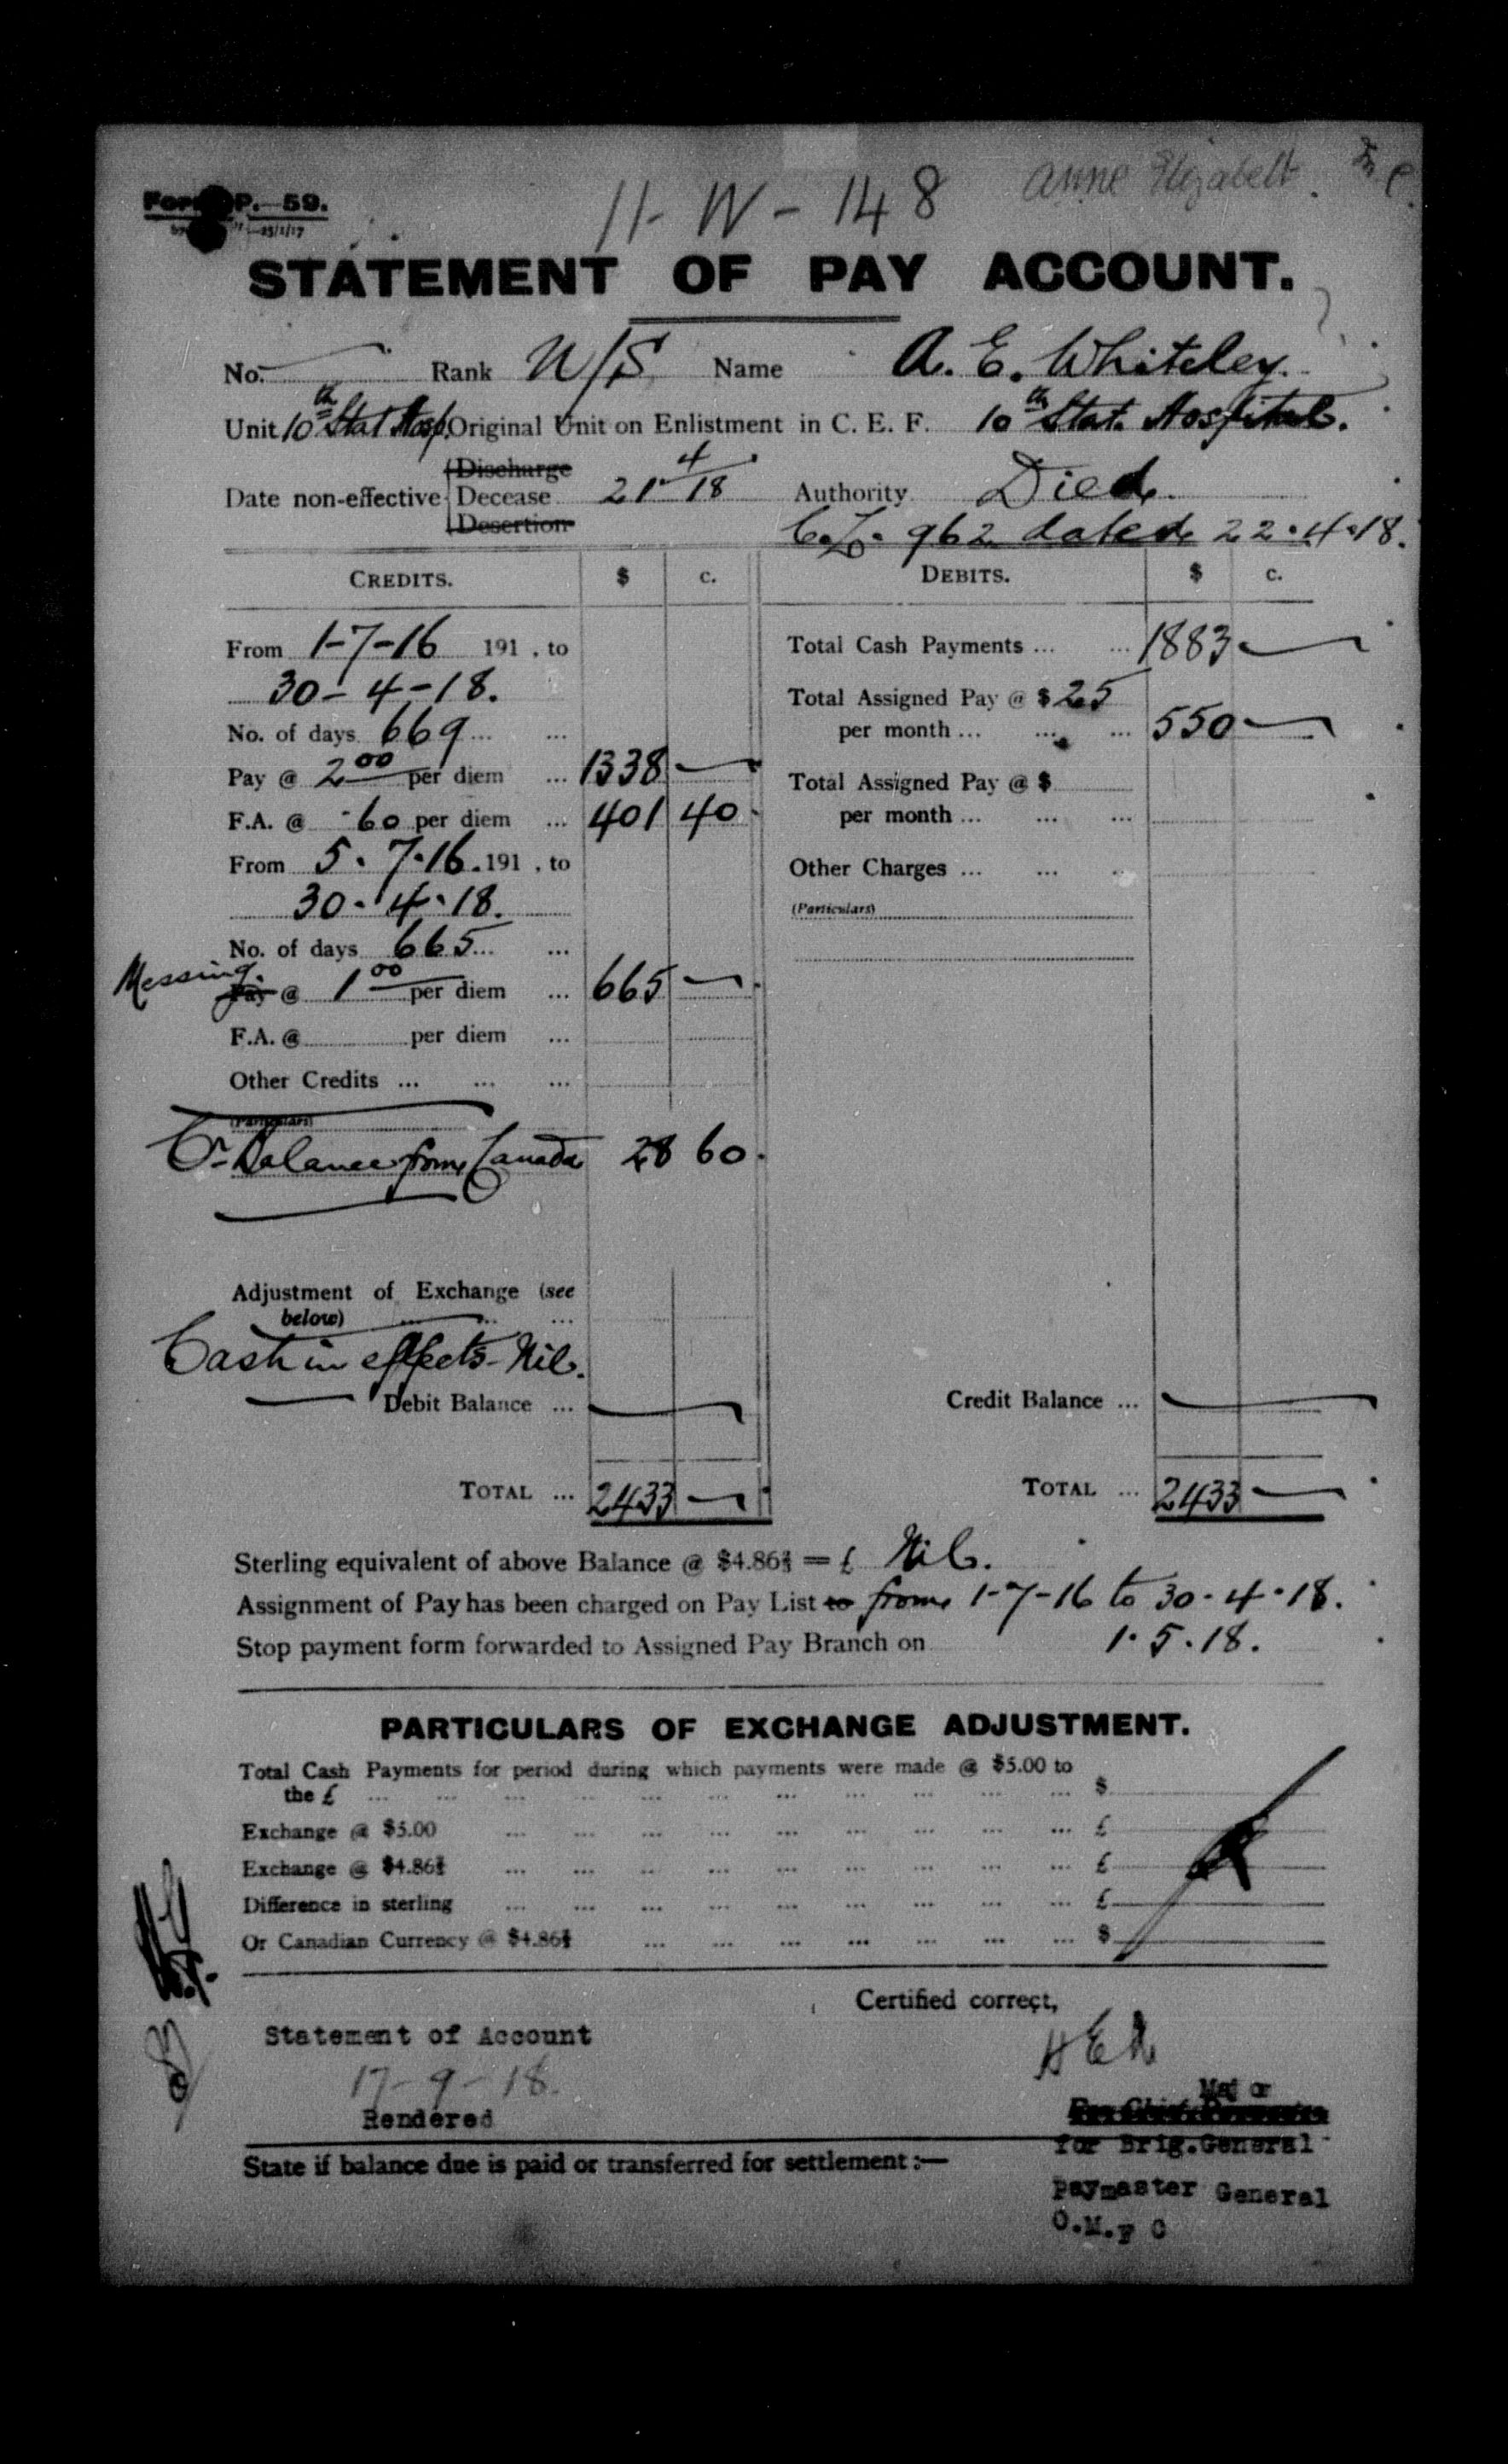 11-W-148 Anne Elizabeth.
P.—59.
STATEMENT OF PAY ACCOUNT.
No. Rank N/S Name A. E. Whiteley.
Unit 10th Stat Hosp. Original Unit on Enlistment in C. E. F. 10th Stat. Hospital.
Discharge
Date non-effective Decease 21-4/18 Authority Died.
Desertion
C.L. 962 dated 22.4.18.
CREDITS. $ c.
From 1-7-16 191 , to
30-4-18.
No. of days 669 ... ...
Pay @ 2.00 per diem ... 1338 —
F.A. @ .60 per diem ... 401 40
From 5.7.16. 191 , to
30.4.18.
No. of days 665 ... ...
Messing.
Pay @ 1.00 per diem ... 665 —
F.A. @ per diem ...
Other Credits ... ... ...
(Particulars)
Cr Balance from Canada 28 60.
Adjustment of Exchange (see
below) ... ... ...
Cash in effects - Nil.
Debit Balance ... —
TOTAL ... 2433 —
DEBITS. $ c.
Total Cash Payments ... ... 1883 —
Total Assigned Pay @ $25
per month ... ... ... 550 —
Total Assigned Pay @ $
per month ... ... ...
Other Charges ... ... ...
(Particulars)
Credit Balance ... —
TOTAL ... 2433 —
Sterling equivalent of above Balance @ $4.86⅔ = £ Nil.
Assignment of Pay has been charged on Pay List to from 1-7-16 to 30.4.18.
Stop payment form forwarded to Assigned Pay Branch on 1.5.18.
PARTICULARS OF EXCHANGE ADJUSTMENT.
Total Cash Payments for period during which payments were made @ $5.00 to
the £ ... ... ... ... ... ... ... ... ... ... ... $
Exchange @ $5.00 ... ... ... ... ... ... ... ... ... £
Exchange @ $4.86⅔ ... ... ... ... ... ... ... ... ... £
Difference in sterling ... ... ... ... ... ... ... ... ... £
Or Canadian Currency @ $4.86⅔ ... ... ... ... ... ... ... $
Certified correct,
Statement of Account
17-9-18.
Rendered
Major
for Brig.General
Paymaster General
O.M.F C
State if balance due is paid or transferred for settlement :—